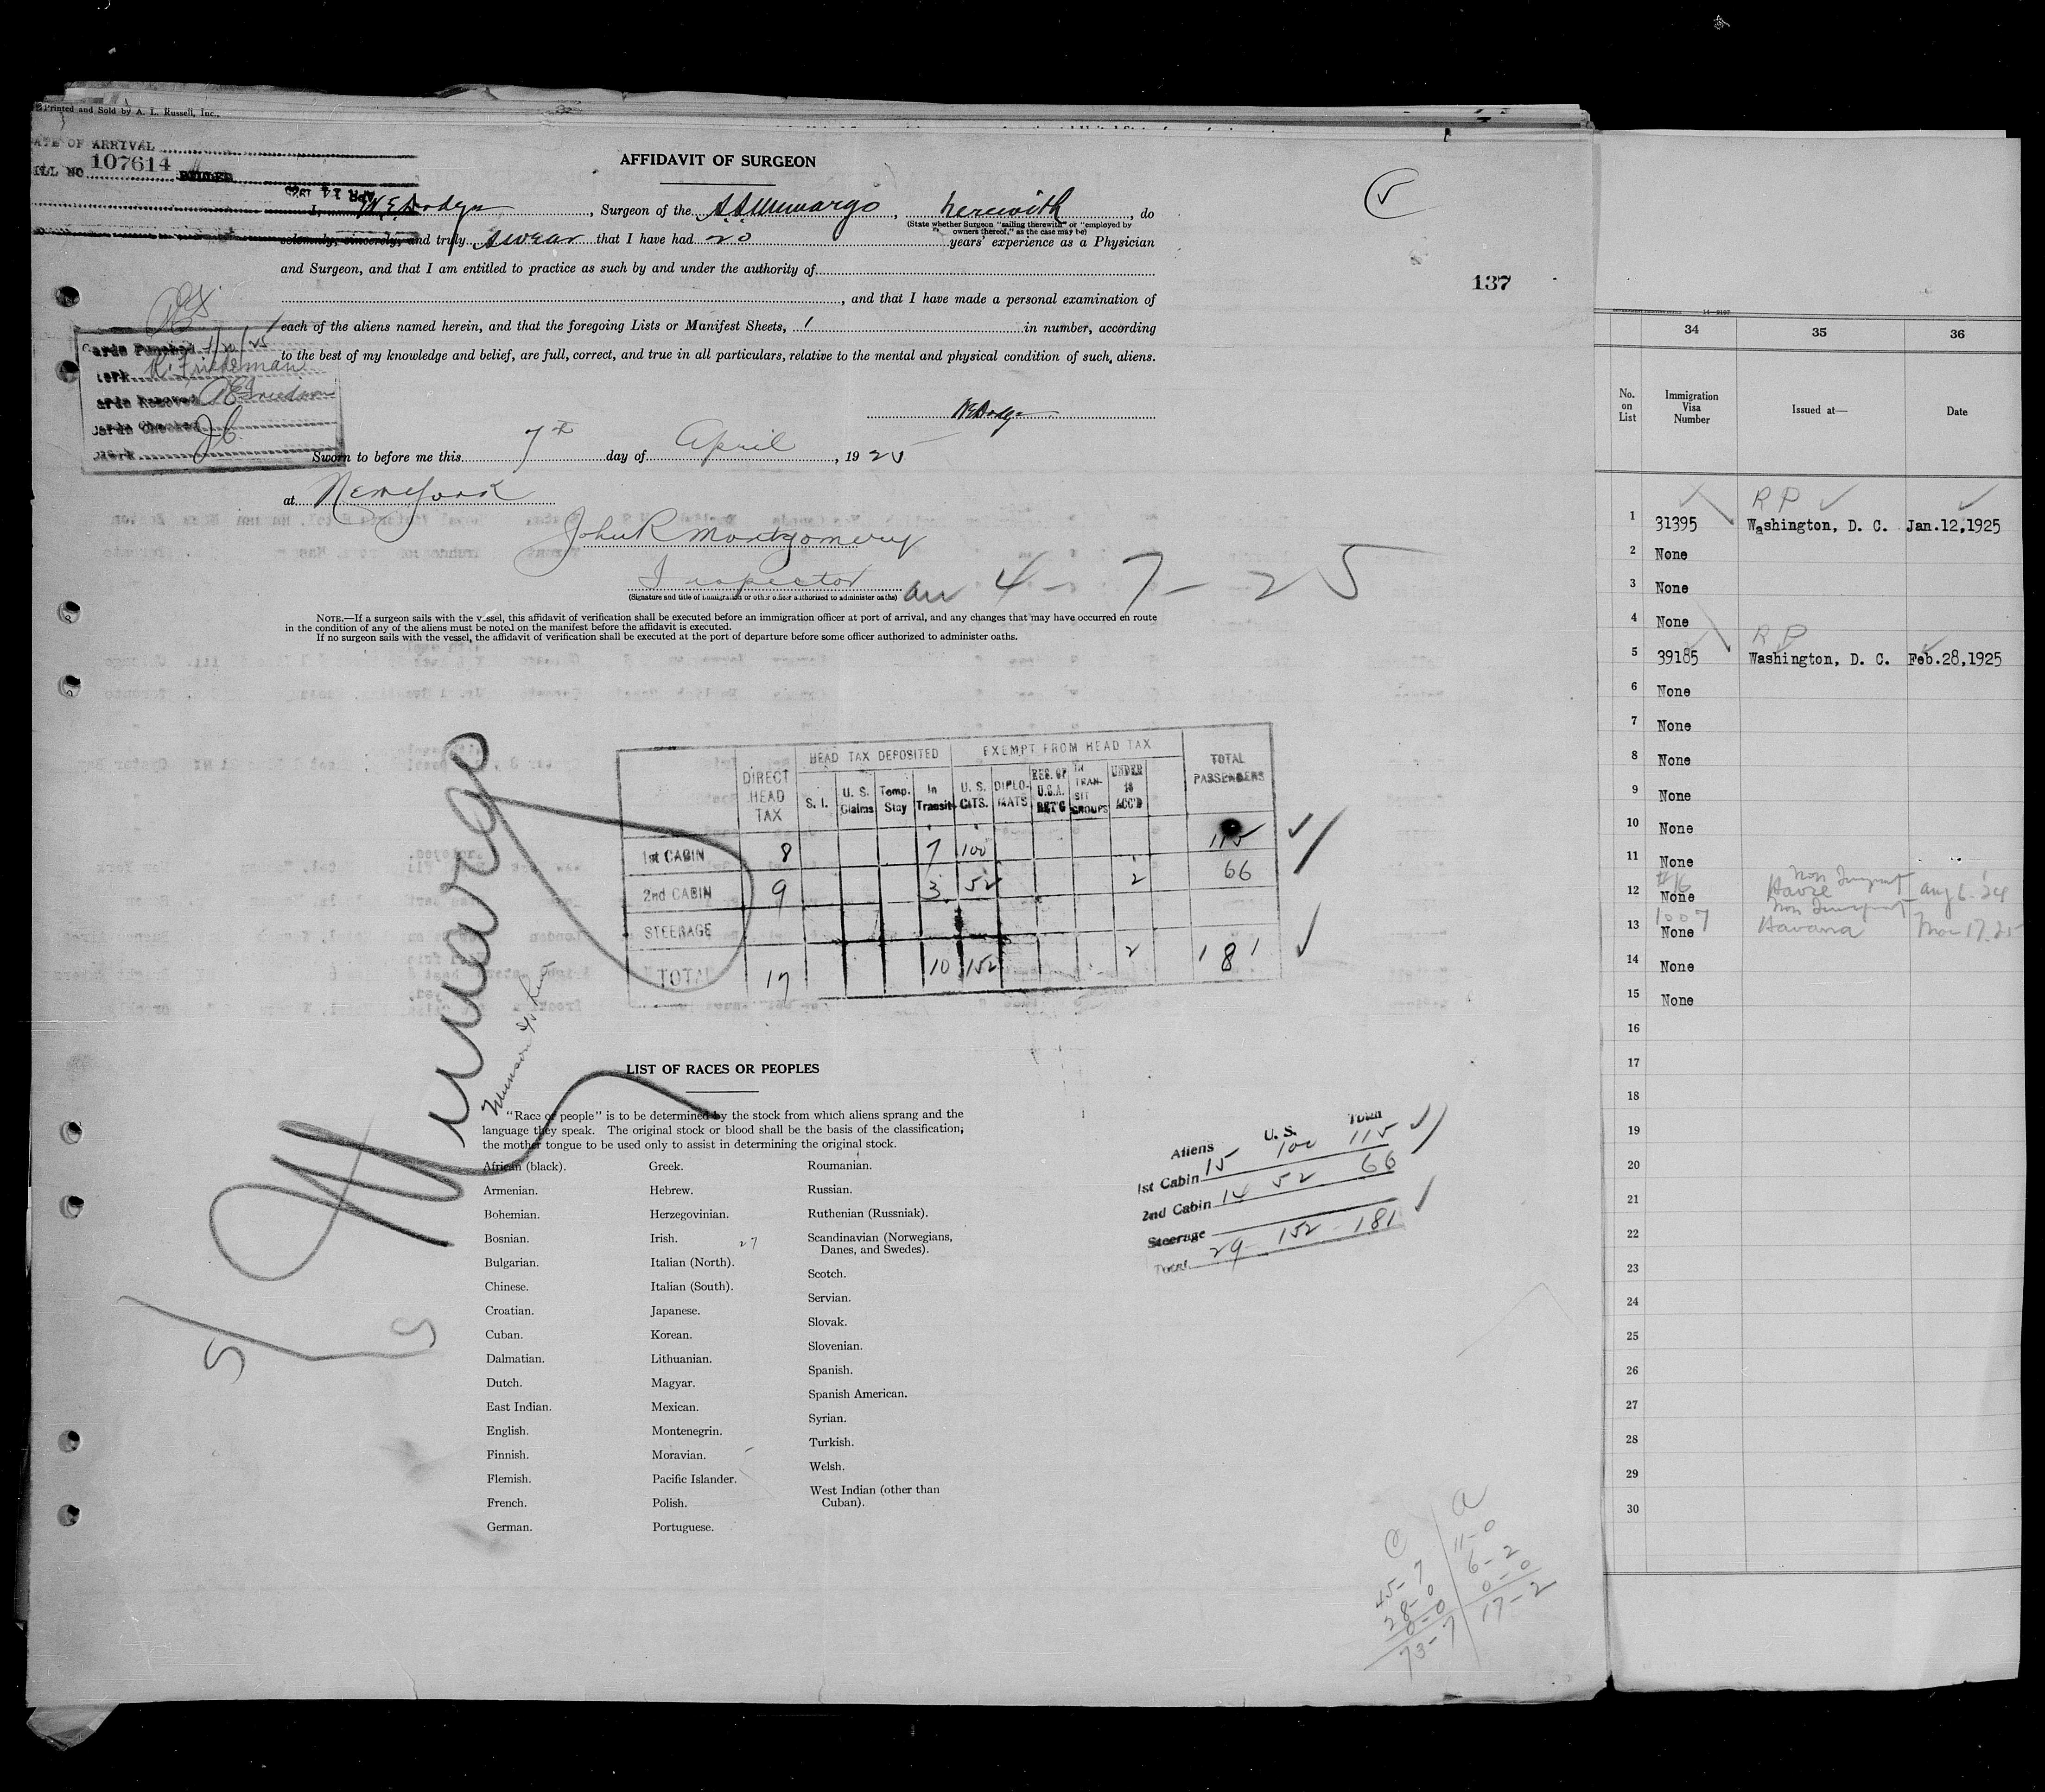 Printed and Sold by A. L. Russell, Inc.,
ATE OF ARRIVAL
ILL NO 107614
AFFIDAVIT OF SURGEON
137
I, W E Dodge, Surgeon of the S S Munargo, herewith, do
(State whether Surgeon "sailing therewith" or "employed by
owners thereof," as the case may be)
solemnly, sincerely, and truly swear that I have had 20 years' experience as a Physician
and Surgeon, and that I am entitled to practice as such by and under the authority of
, and that I have made a personal examination of
each of the aliens named herein, and that the foregoing Lists or Manifest Sheets, 1 in number, according
to the best of my knowledge and belief, are full, correct, and true in all particulars, relative to the mental and physical condition of such aliens.
ards Punched
erk H. Friedeman
ards Removed
ards Checked J C
W E Dodge
Sworn to before me this 7th day of April, 1925
at New York
John R Montgomery
Inspector
(Signature and title of immigration or other officer authorized to administer oaths)
arr 4-7-25
NOTE.—If a surgeon sails with the vessel, this affidavit of verification shall be executed before an immigration officer at port of arrival, and any changes that may have occurred en route
in the condition of any of the aliens must be noted on the manifest before the affidavit is executed.
If no surgeon sails with the vessel, the affidavit of verification shall be executed at the port of departure before some officer authorized to administer oaths.
Munargo
Munson SS Line
DIRECT HEAD TAX
HEAD TAX DEPOSITED
EXEMPT FROM HEAD TAX
TOTAL PASSENGERS
S. I. U. S. Claims Temp. Stay In Transit U. S. CITS. DIPLOMATS RES. OF U.S.A. RET'G IN TRANSIT GROUPS UNDER 16 ACC'D
1st CABIN 8 7 100 115
2nd CABIN 9 3 52 2 66
STEERAGE
TOTAL 17 10 152 2 181
LIST OF RACES OR PEOPLES
"Race or people" is to be determined by the stock from which aliens sprang and the
language they speak. The original stock or blood shall be the basis of the classification;
the mother tongue to be used only to assist in determining the original stock.
African (black).
Armenian.
Bohemian.
Bosnian.
Bulgarian.
Chinese.
Croatian.
Cuban.
Dalmatian.
Dutch.
East Indian.
English.
Finnish.
Flemish.
French.
German.
Greek.
Hebrew.
Herzegovinian.
Irish.
27
Italian (North).
Italian (South).
Japanese.
Korean.
Lithuanian.
Magyar.
Mexican.
Montenegrin.
Moravian.
Pacific Islander.
Polish.
Portuguese.
Roumanian.
Russian.
Ruthenian (Russniak).
Scandinavian (Norwegians,
Danes, and Swedes).
Scotch.
Servian.
Slovak.
Slovenian.
Spanish.
Spanish American.
Syrian.
Turkish.
Welsh.
West Indian (other than
Cuban).
Aliens U. S. Total
1st Cabin 15 100 115
2nd Cabin 14 52 66
Steerage
Total 29 152 181
C a
45-7 11-0
28-0 6-2
0-0 0-0
73-7 17-2
34 35 36
No. on List
Immigration Visa Number
Issued at—
Date
R P
1 31395 Washington, D. C. Jan.12,1925
2 None
3 None
4 None
R P
5 39185 Washington, D. C. Feb.28,1925
6 None
7 None
8 None
9 None
10 None
11 None
#16 Non Immgrnt
12 None Havre Aug 6-24
1007 Non Immgrnt
13 None Havana Mar 17-25
14 None
15 None
16
17
18
19
20
21
22
23
24
25
26
27
28
29
30